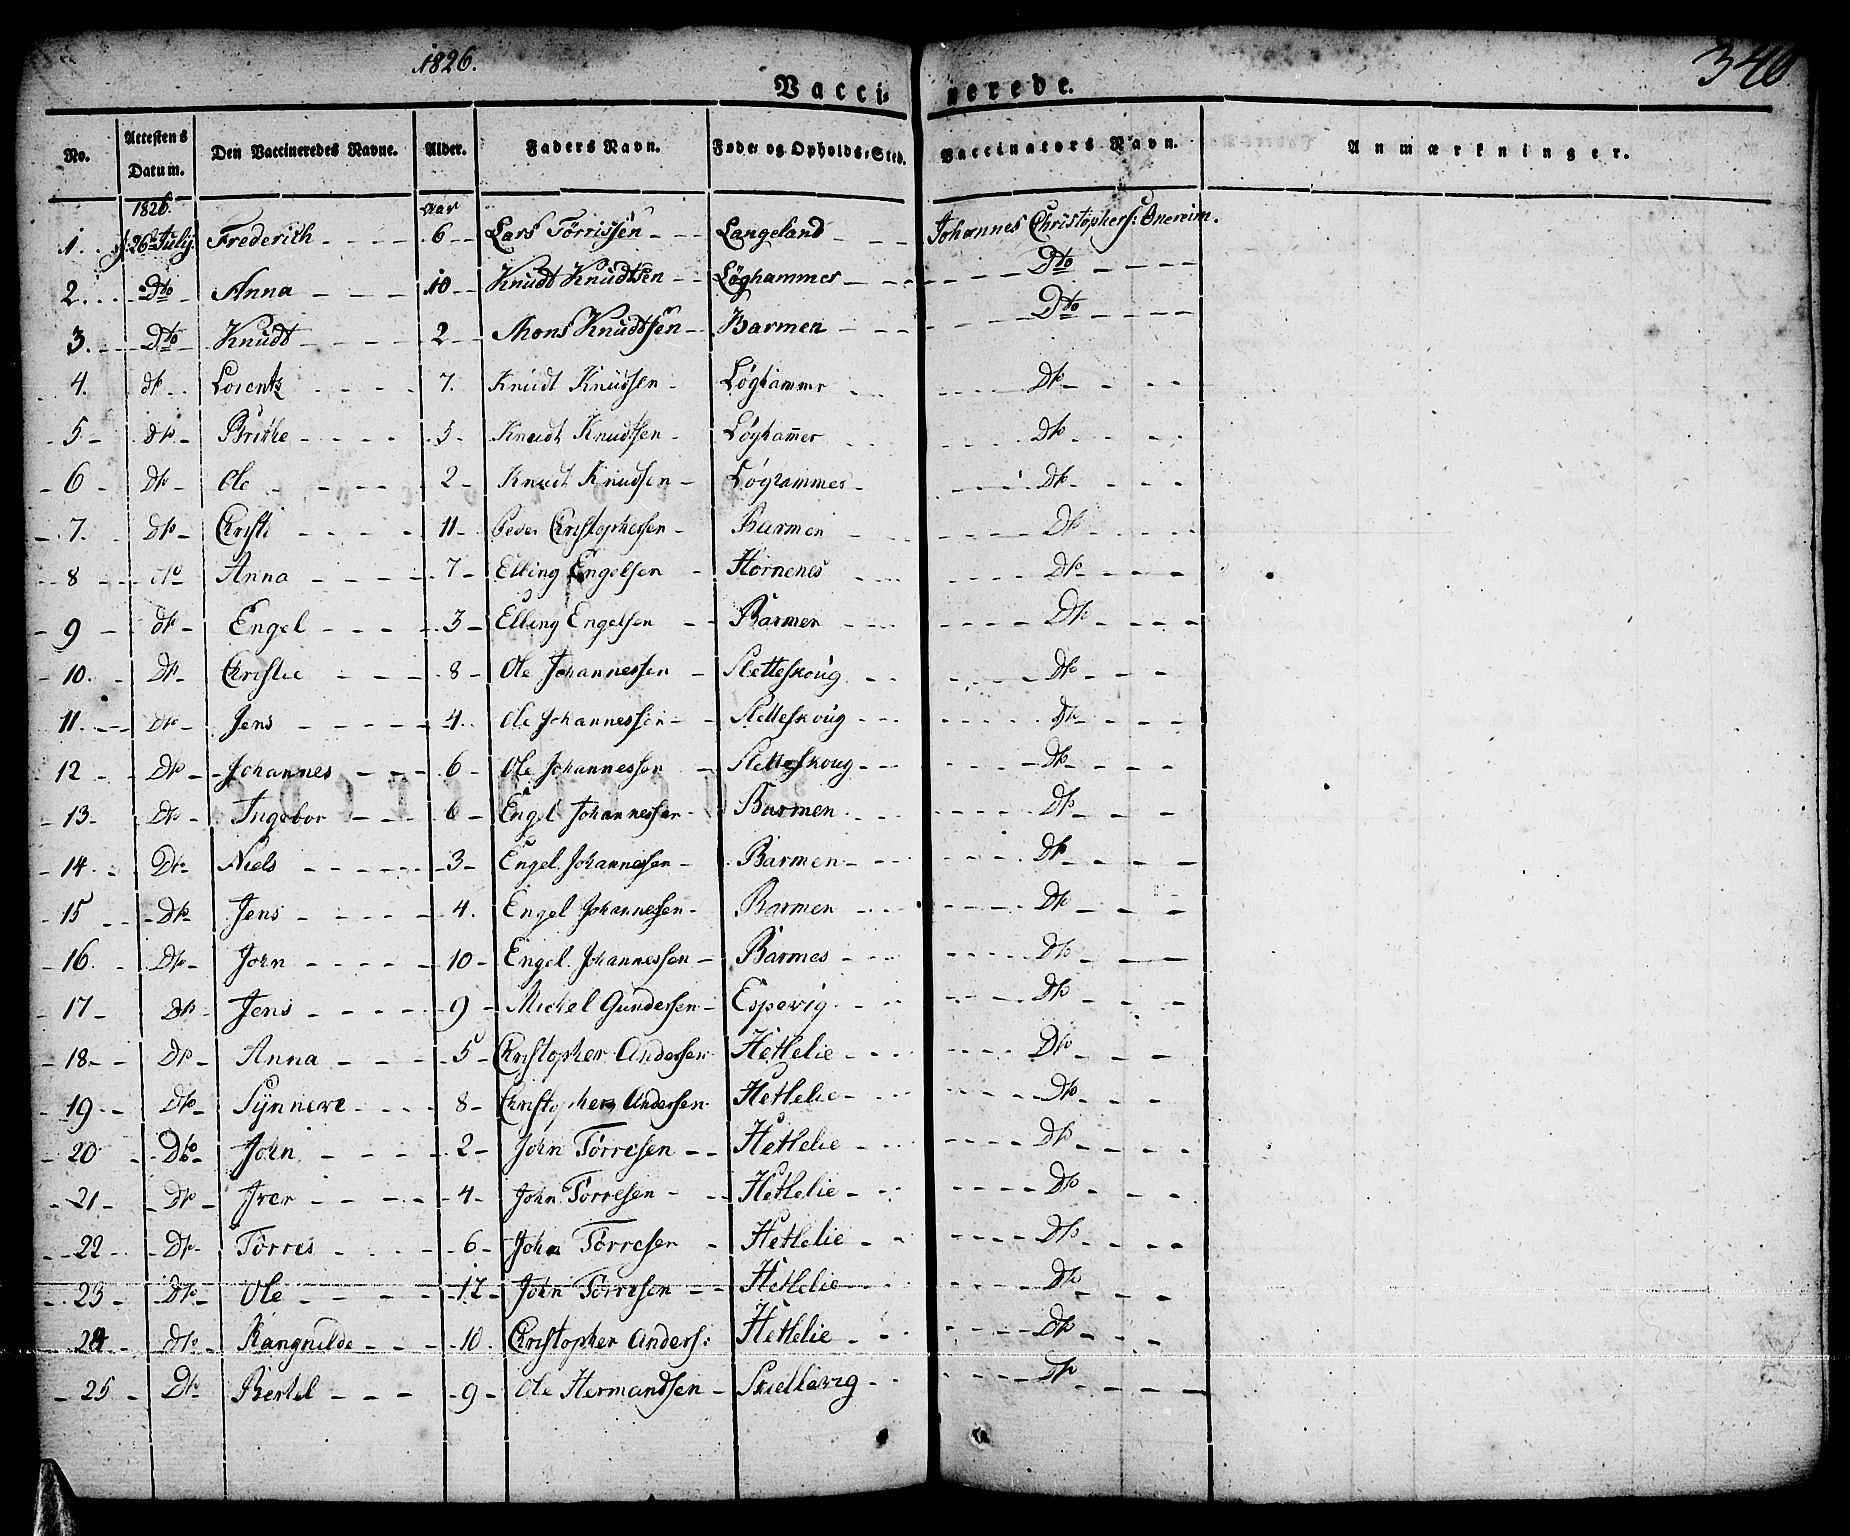 1826.
346
Vacci- nerede.
No. Attestens Datum. Den Vaccineredes Navne. Alder. Faders Navn. Føde- og Opholds-Sted. Vaccinators Navn. Anmærkninger.
1826. Aar
1. 26 July Frederich 6 Lars Törrissen Langeland Johannes Christophers: Onereim.
2. Dto Anna 10 Knudt Knudtsen Løghammer Dto
3. Dto Knudt 2 Mons Knudtsen Barmen Dto
4. dto Lorentz 7. Knudt Knudsen Løghammer Dto
5 dto Brithe 5 Knudt Knudtsen Løgham̅er Dto
6 dto Ole 2 Knudt Knudsen Løghammer Dto
7. dto Christi 11 Peder Christophersen Barmen Dto
8 dto Anna 7 Elling Engelsen Hornenes Dto
9 dto Engel 3 Elling Engelsen Barmen Dto
10. Dto Christie 8 Ole Johannessen Sletteskoug Dto
11. Dto Jens 4. Ole Johannessen Sletteskoug Dto
12 Dto Johannes 6 Ole Johannessen Sletteskoug Dto
13 Dto Ingebor 6 Engel Johannessen Barmen Dto
14. Dto Niels 3 Engel Johannessen Barmen Dto
15 Dto Jens 4. Engel Johannessen Barmen Dto
16. Dto John 10 Engel Johannessen Barmen Dto
17 Dto Jens 9 Michel Gundersen Espevig Dto
18 Dto Anna 5 Christopher Andersen Hethelie Dto
19 Dto Synneve 8 Christopher Andersen Hethelie Dto
20 Dto John 2 John Törresen Hethelie Dto
21 Dto Iver 4 John Törresen Hethelie Dto
22 Dto Törres 6 John Törresen Hethelie Dto
23 Dto Ole 12 John Törresen Hethelie Dto
24 Dto Rangnilde 10 Christopher Anders: Hethelie Dto
25 Dto Bertel 9 Ole Hermandsen Skiellevig Dto